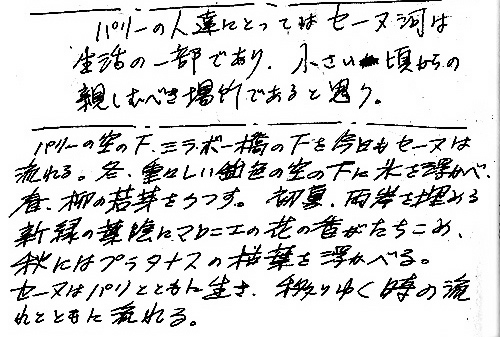 パリーの人達にとってはセーヌ河は
生活の一部であり、小さい頃からの
親しむべき場所であると思う。
パリーの空の下、ミラボー橋の下を今日もセーヌは
流れる。冬、重々しい鉛色の空の下に氷を浮かべ、
春、柳の若芽をうつす。初夏、両岸を埋める
新緑の葉陰にマロニエの花の香がたちこめ、
秋にはプラタナスの枯葉を浮かべる。
セーヌはパリとともに生き、移りゆく時の流
れとともに流れる。